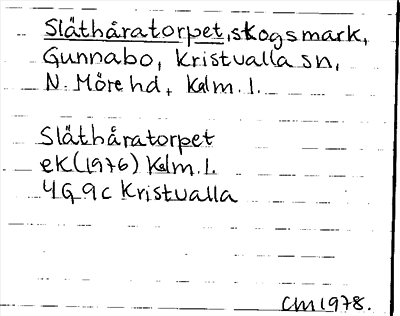 Släthåratorpet, skogsmark,
Gunnabo, Kristvalla sn,
N. Möre hd, Kalm. l.
Släthåratorpet
ek (1976) Kalm. l.
4G9c Kristvalla
CM 1978.